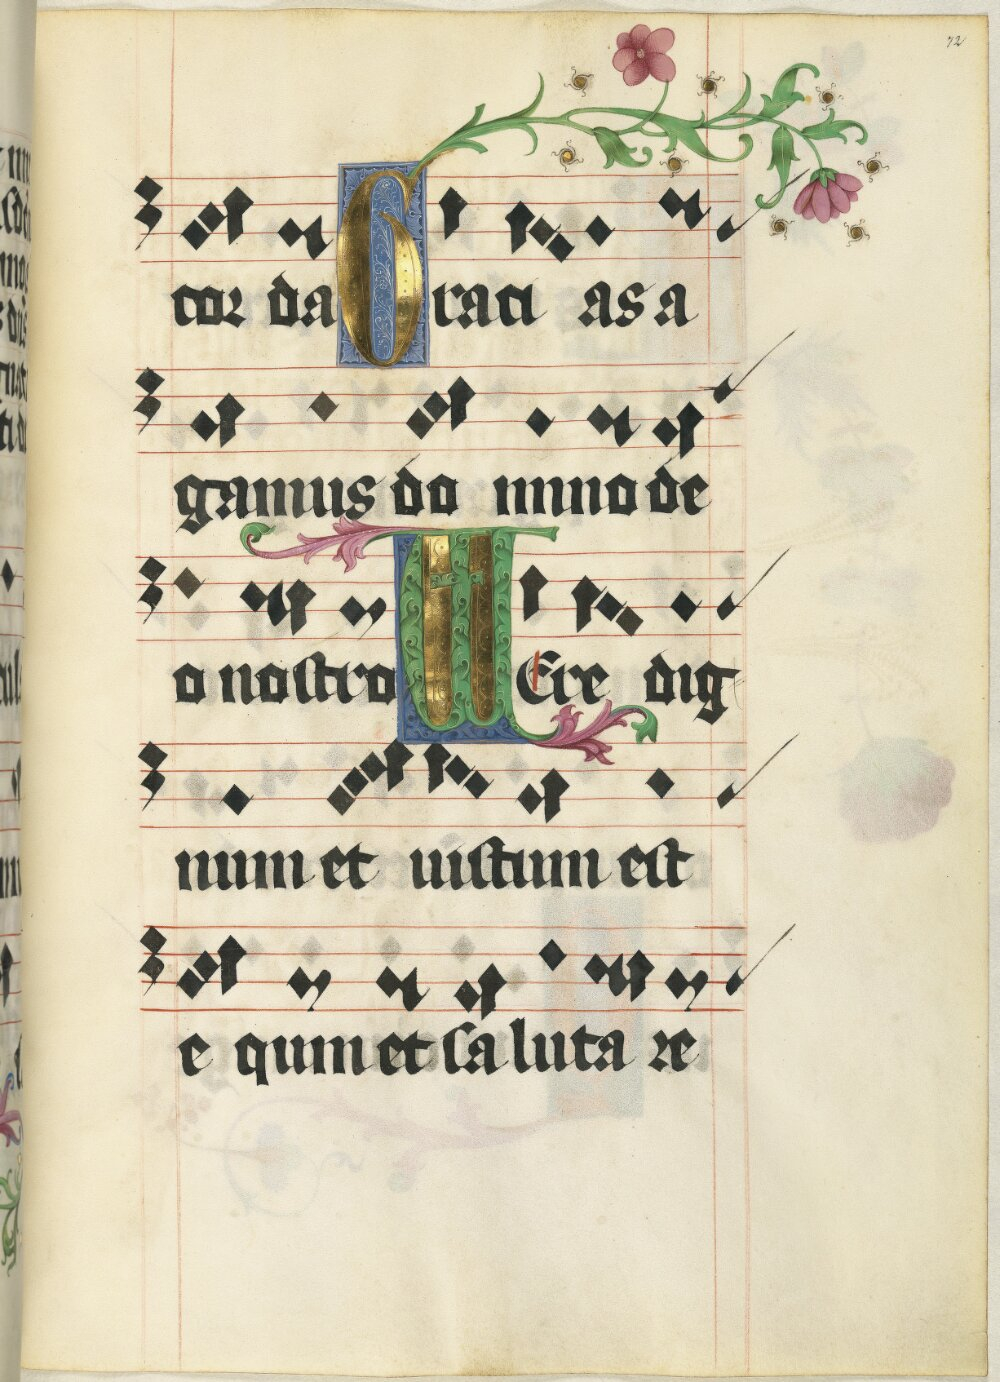 72
cor da Graci as a
gamus do mino de
o nostro UEre dig
num et iustum est
e quum et saluta re